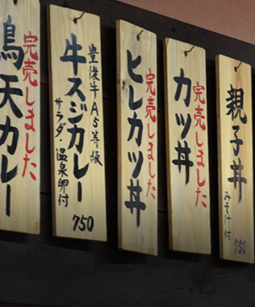 親子丼
みそ汁付
750
カツ丼
完売しました
ヒレカツ丼
完売しました
豊後牛A5等級
牛スジカレー
サラダ・温泉卵付
750
鳥天カレー
完売しました